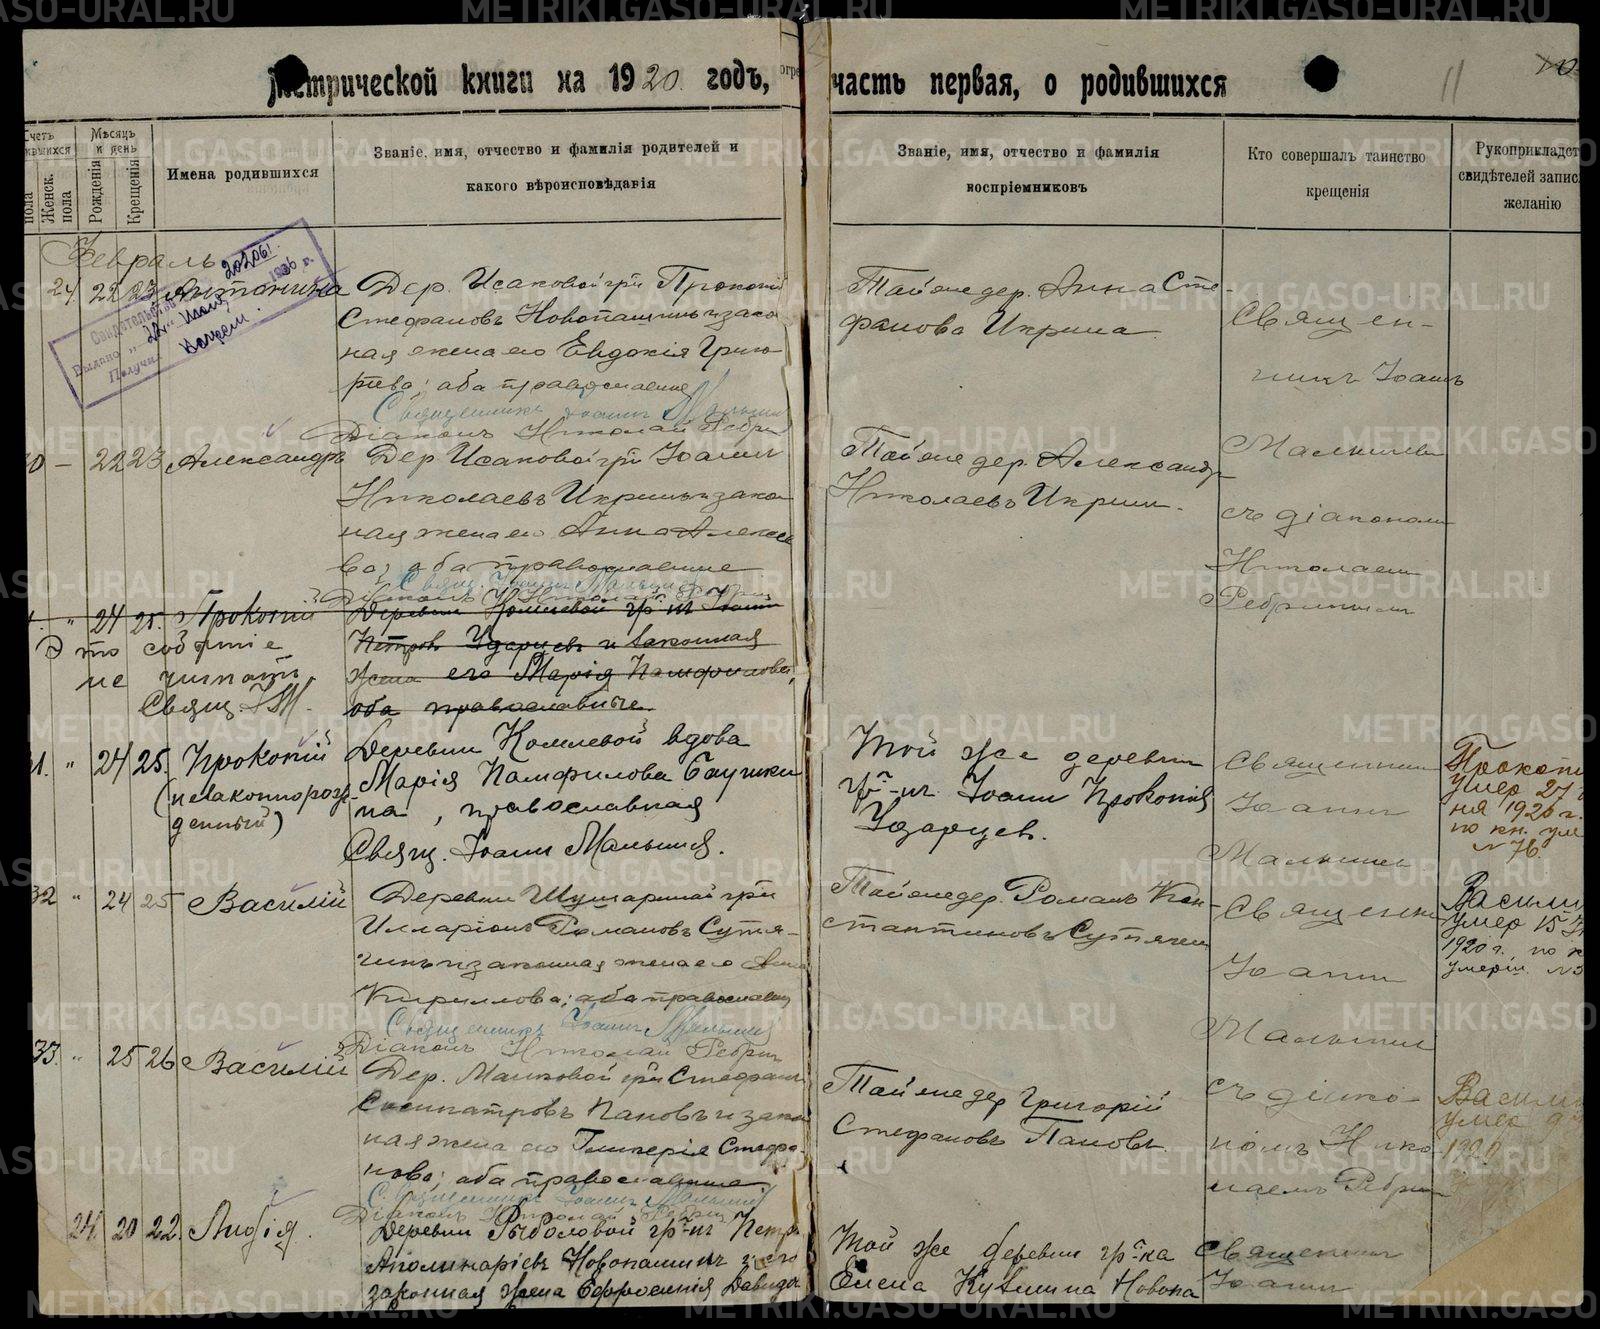 Метрической книги на 1920 годъ, часть первая, о родившихся
11
Счетъ
Мѣсяцъ и день
Женск. пола
Рожденія
Крещенія
Имена родившихся
Званіе, имя, отчество и фамилія родителей и
какого вѣроисповѣданія
Званіе, имя, отчество и фамилія
воспріемниковъ
Кто совершалъ таинство
крещенія
Рукоприкладст
свидѣтелей запис
желанію
Февраль
22 23 Антонина
Дер. Исаковой гр-н Прокопій
Стефановъ Новопашинъ и зако-
ная жена его Евдокія Григо-
рьева; оба православные
Священникъ Іоаннъ Малышев
Діаконъ Николай Ребрин
Той же дер. Анна Сте-
фанова Икрина
Свидѣтельство 20206
Выдано „22" 1936 г.
Получил
Священ-
никъ Іоаннъ
Малышев
съ діакономъ
Николаем
Ребриным
30 – 22 23 Александръ
Дер Исаковой гр-н Іоаннъ
Николаевъ Икринъ и зако
ная жена его Анна Алексе
ва; оба православные
Свящ. Іоаннъ Малышев
Діаконъ Николай Ребрин
Той же дер. Александр
Николаевъ Икрин.
" 24 25. Прокопій
Деревни Комлевой гр-нъ Іоаннъ
Петров Ударцев и законная
жена его Марія Памфилова,
оба православные.
Это событіе
не читать
Свящ. І.М.
31. " 24 25. Прокопій
(незаконнорож-
денный)
Деревни Комлевой вдова
Марія Памфилова
на, православная
Свящ. Іоанн Малышев.
Той же деревни
гр-нъ Іоанн Прокопіев
Ударцев.
Священник
Іоанн
Малышев
Прокопи
умер 27
ня 1920 г.
по кн. уме
N 76.
32 " 24 25 Василій
Деревни Шушариной гр-н
Илларіонъ Романовъ Сутя-
гинъ и законная жена его
Кириллова; оба православн
Священникъ Іоаннъ Малышев
Діаконъ Николай Ребрин
Той же дер. Романъ Кон-
стантиновъ Сутягин
Священник
Іоанн
Малышев
Васили
умер 15
1920 г. по к
умерш. N3
33. " 25 26 Василій
Дер. Маиковой гр-н Стефанъ
Сосипатровъ Пановъ и зако
ная жена его Гликерія Стефа-
нова; оба православные
Священникъ Іоаннъ Малышев
Діаконъ Николай Ребрин
Той же дер Григорій
Стефановъ Пановъ
съ діако-
номъ Нико
лаемъ Ребрин
Васили
умер
1920
24. 20 22. Любія.
Деревни Рыболовой гр-нъ Петр
Аполинаріевъ Новопашин и его
законная жена Ефросинія Давидо
Той же деревни гр-ка
Елена Кузмина Новопа
Священник
Іоанн
METRIKI.GASO-URAL.RU